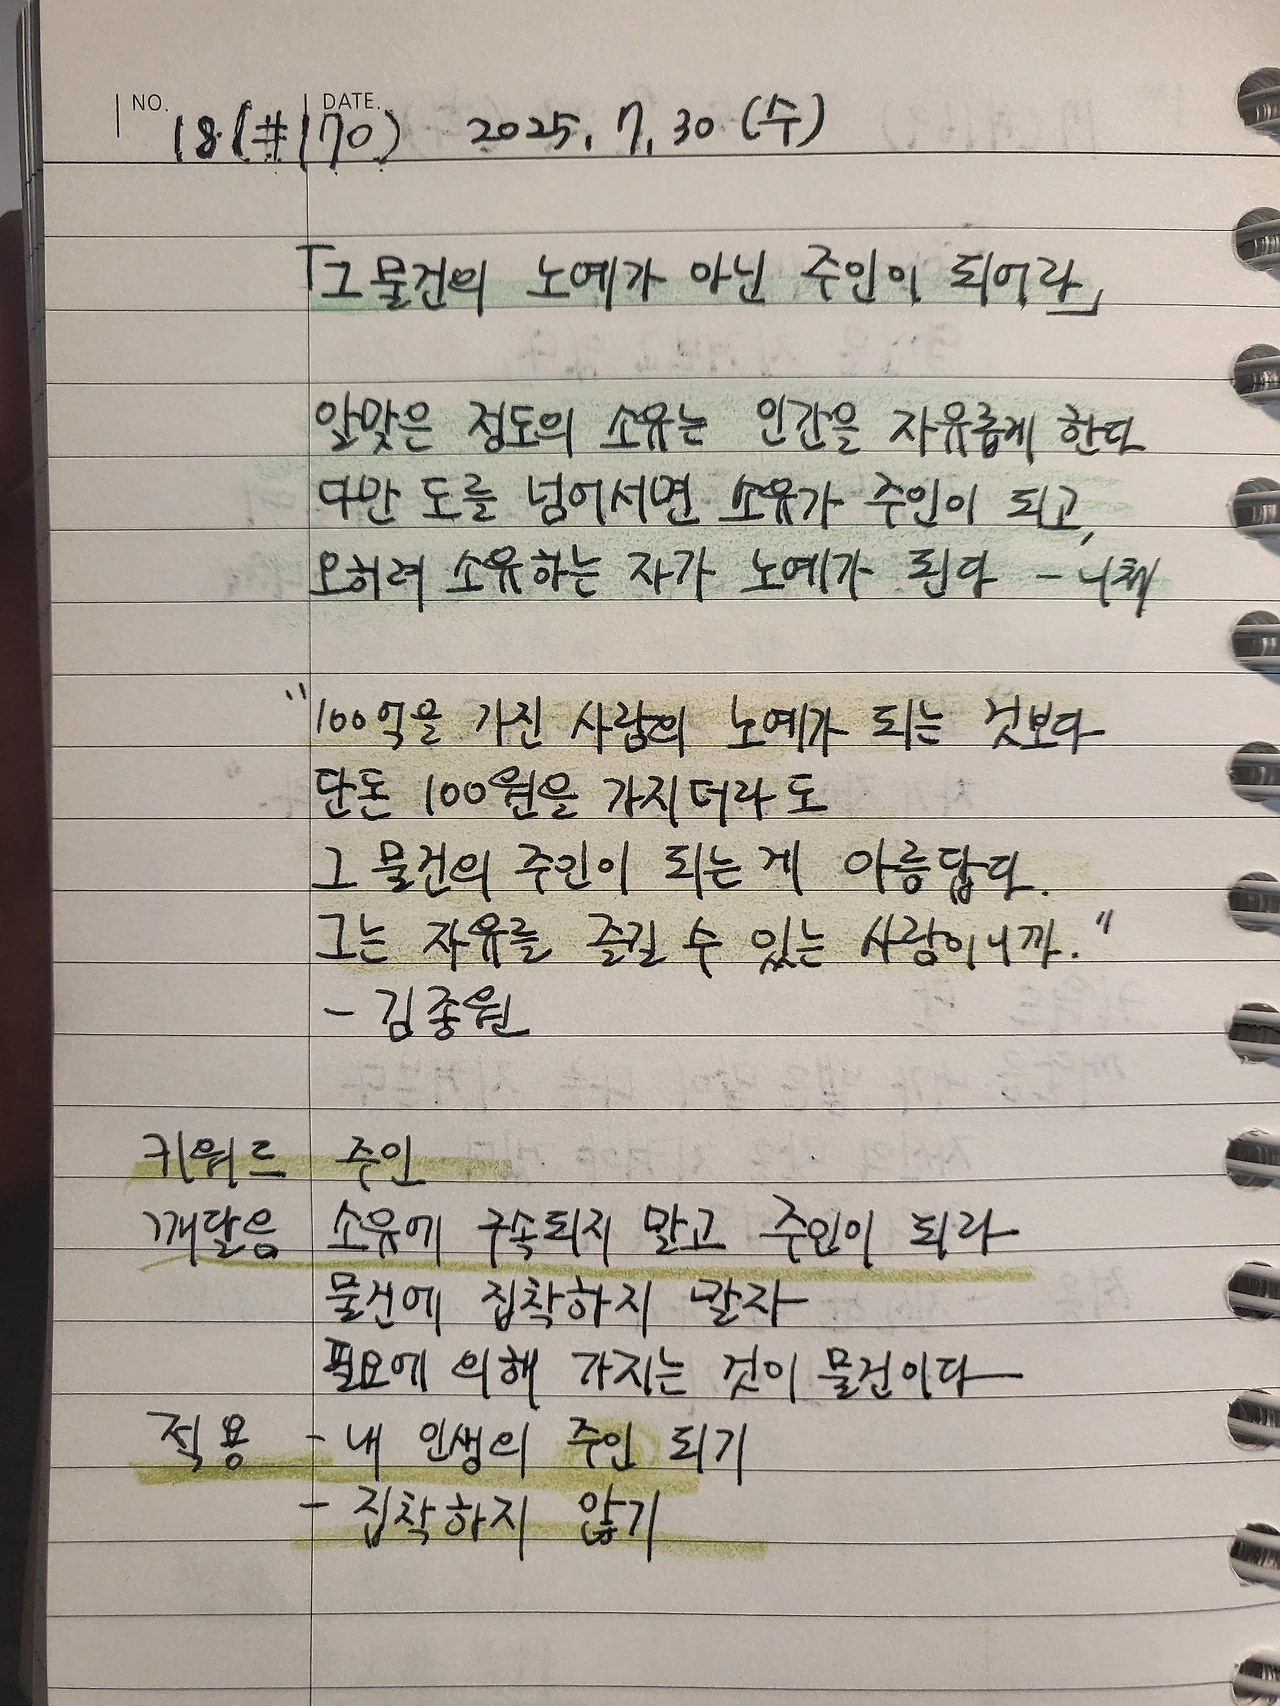 NO. DATE.
18(#170) 2025. 7. 30 (수)
「그 물건의 노예가 아닌 주인이 되어라」
알맞은 정도의 소유는 인간을 자유롭게 한다
다만 도를 넘어서면 소유가 주인이 되고,
오히려 소유하는 자가 노예가 된다 - 니체
"100억을 가진 사람의 노예가 되는 것보다
단돈 100원을 가지더라도
그 물건의 주인이 되는 게 아름답다.
그는 자유를 즐길 수 있는 사람이니까."
- 김종원
키워드 주인
깨달음 소유에 구속되지 말고 주인이 되라
물건에 집착하지 말자
필요에 의해 가지는 것이 물건이다
적용 - 내 인생의 주인 되기
- 집착하지 않기